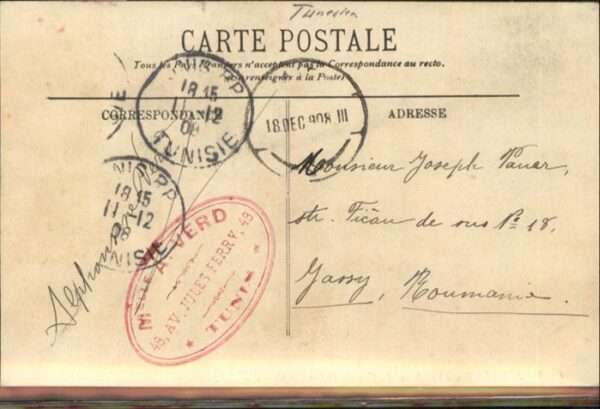 Tunesien
CARTE POSTALE
Tous les Pays Etrangers n'acceptent pas la Correspondance au recto.
(Se renseigner à la Poste)
CORRESPONDANCE
ADRESSE
TUNIS RP
18 15
11 - 12
08
TUNISIE
18 DEC 908 III
TUNIS RP
18 15
11 - 12
08
TUNISIE
A. VERD
43, AV. JULES FERRY, 43
TUNIS
Alphonsine
Monsieur Joseph
str. de sus No 18,
Jassy, Roumanie.